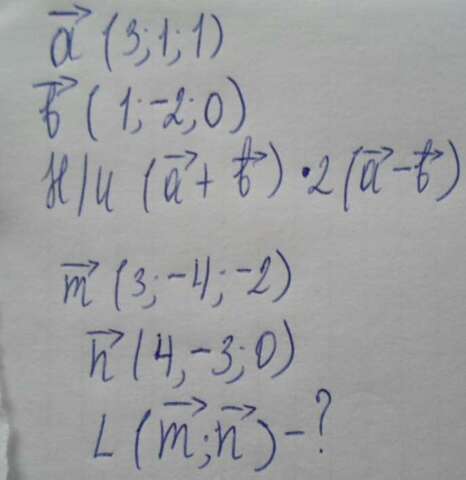 a⃗ (3;1;1)
b⃗ (1;-2;0)
Н/и (a⃗ + b⃗) · 2(a⃗ - b⃗)
m⃗ (3;-4;-2)
n⃗ (4,-3;0)
∠(m⃗;n⃗) - ?